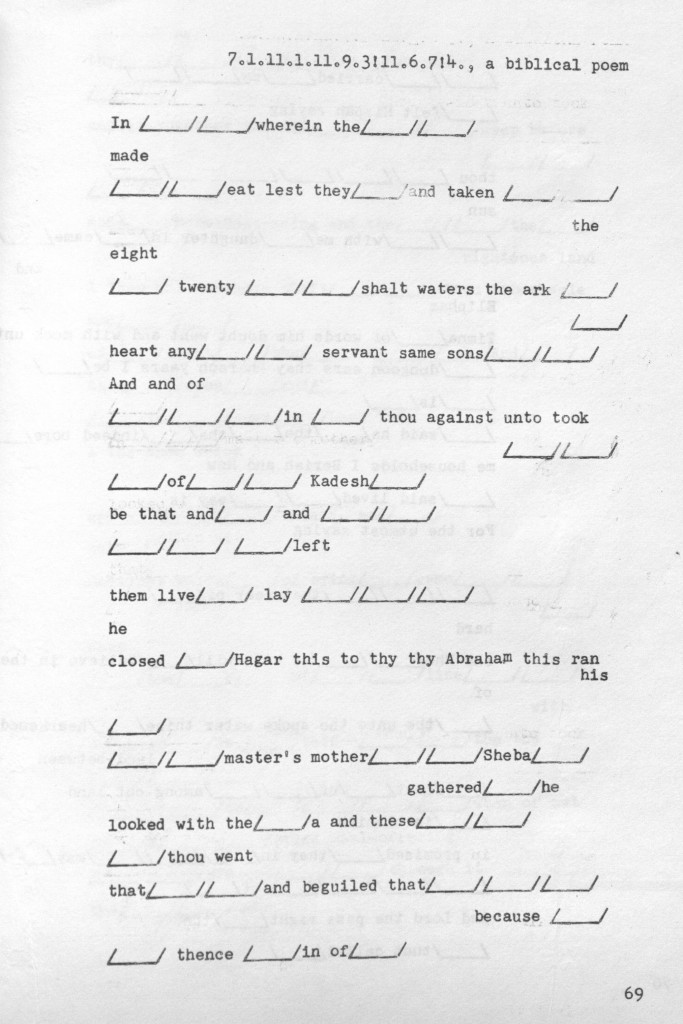 7.1.11.1.11.9.3!11.6.7!4., a biblical poem
In /___//___/wherein the/___//___/
made
/___//___/eat lest they/___/and taken /___ ___/
the
eight
/___/ twenty /___//___/shalt waters the ark /___/
/___/
heart any/___//___/ servant same sons/___//___/
And and of
/___//___//___/in /___/ thou against unto took
/___//___/
/___/of/___//___/ Kadesh/___/
be that and/___/ and /___//___/
/___//___/ /___/left
them live/___/ lay /___//___//___/
he
closed /___/Hagar this to thy thy Abraham this ran
his
/___/
/___//___/master's mother/___//___/Sheba/___/
gathered/___/he
looked with the/___/a and these/___//___/
/___/thou went
that/___//___/and beguiled that/___//___//___/
because /___/
/___/ thence /___/in of/___/
69